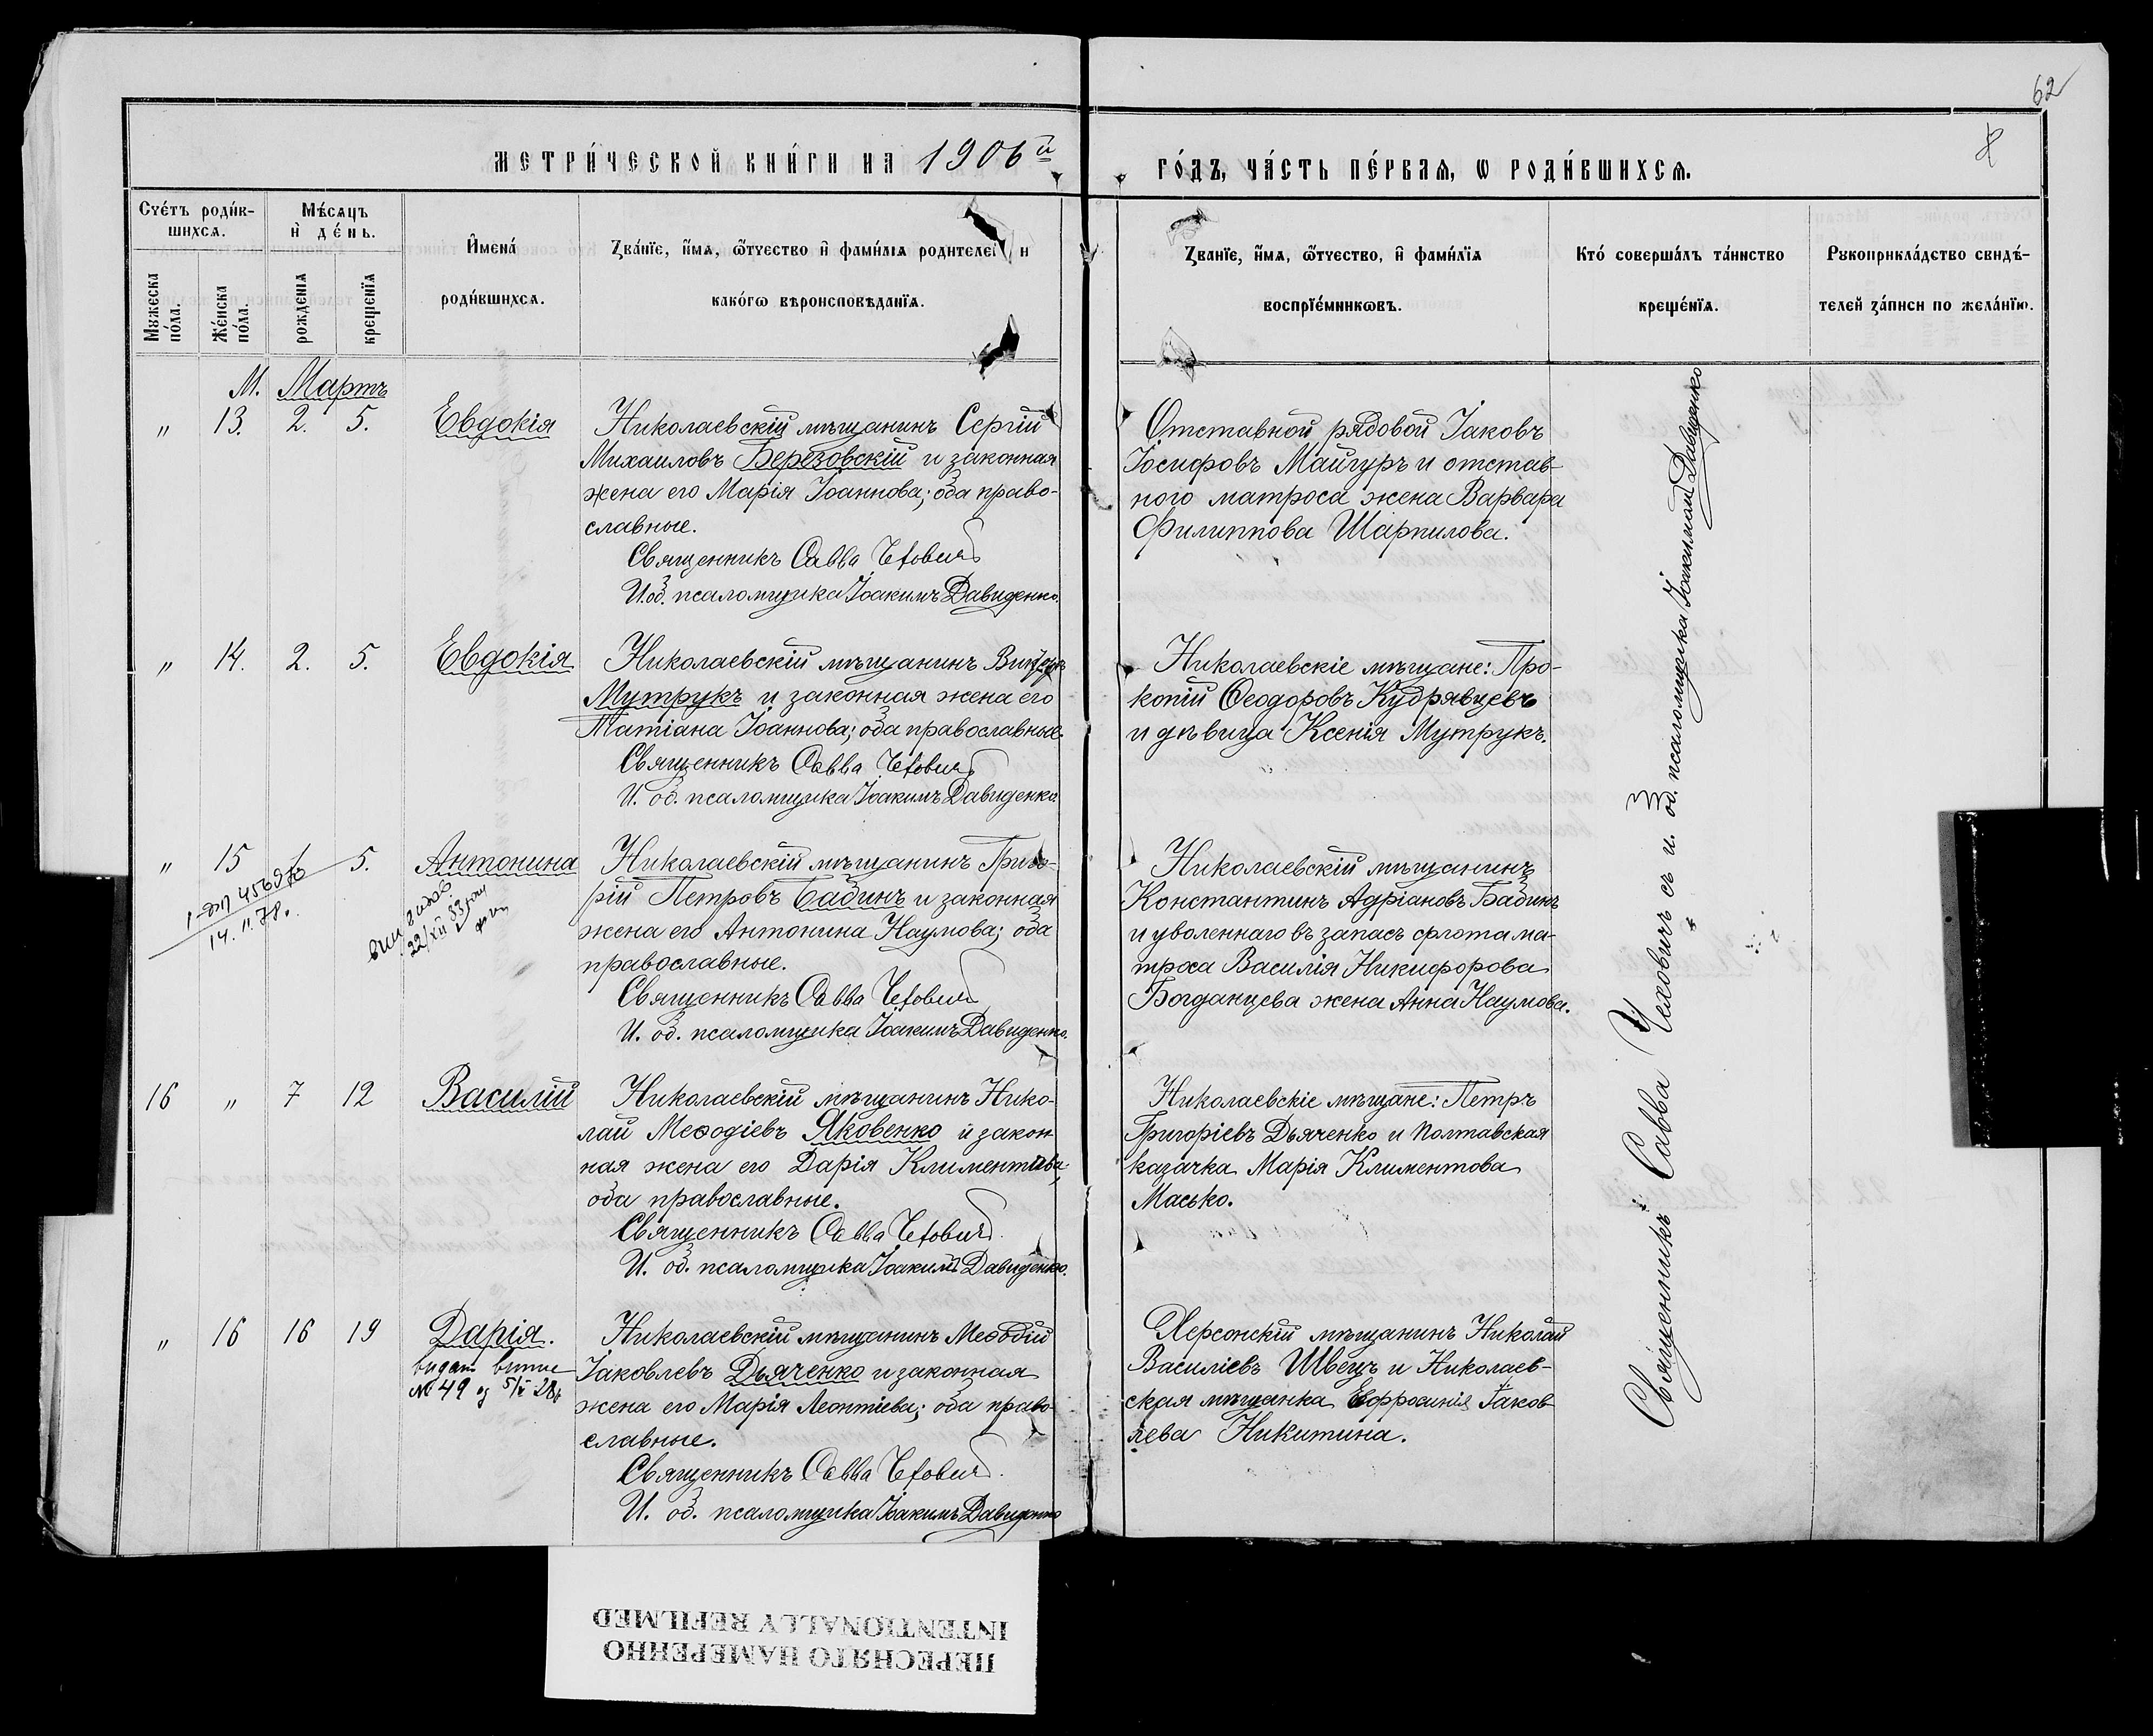 62
8
МЕТРИ́ЧЕСКОЙ КНИ́ГИ НА 1906й ГО́ДЪ, ЧА́СТЬ ПЕ́РВАѦ, Ѡ РОДИ́ВШИХСѦ.
Сче́тъ роди́в-
шихсѧ.
Мужеска
по́ла.
Же́нска
по́ла.
Мѣ́сѧцъ
и҆ де́нь.
рожденїѧ
крещенїѧ
И҆мена́
роди́вшихсѧ.
Зва́нїе, и҆́мѧ, ѻ҆́тчество и҆ фами́лїѧ родителей и
како́гѡ вѣроисповѣданїѧ.
Званїе, и҆́мѧ, ѻ҆́тчество, и҆ фами́лїѧ
воспрїе́мникѡвъ.
Кто́ соверша́лъ та́инство
креще́нїѧ.
Рукоприкла́дство свидѣ́-
телей за́писи по жела́нїю.
М. Мартъ
" 13. 2. 5.
Евдокія
Николаевскій мѣщанинъ Сергій
Михаиловъ Березовскій и законная
жена его Марія Іоаннова; оба право-
славные.
Священникъ Савва Чехович
И. об. псаломщика Іоакимъ Давиденко.
Отставной рядовой Іаковъ
Іосифовъ Майгуръ и отстав-
ного матроса жена Варвара
Филиппова Шарпилова.
" 14. 2. 5.
Евдокія
Николаевскій мѣщанинъ
Мутрукъ и законная жена его
Татіана Іоаннова; оба православные.
Священникъ Савва Чехович
И. об. псаломщика Іоакимъ Давиденко.
Николаевскіе мѣщане: Про-
копій Ѳеодоровъ Кудрявцевъ
и дѣвица Ксенія Мутрукъ.
" 15 1 5.
14.II.78.
Антонина
Николаевскій мѣщанинъ Григо-
рій Петровъ Бабинъ и законная
жена его Антонина Наумова; оба
православные.
Священникъ Савва Чехович
И. об. псаломщика Іоакимъ Давиденко.
Николаевскій мѣщанинъ
Константинъ Адріановъ Бабинъ
и уволеннаго въ запасъ флота ма-
троса Василія Никифорова
Богданцева жена Анна Наумова.
16 " 7 12
Василій
Николаевскій мѣщанинъ Нико-
лай Меѳодіевъ Яковенко и закон-
ная жена его Дарія Климентова,
оба православные.
Священникъ Савва Чехович
И. об. псаломщика Іоакимъ Давиденко.
Николаевскіе мѣщане: Петръ
Григоріевъ Дьяченко и Полтавская
казачка Марія Климентова
Масько.
" 16 16 19
Дарія.
№ 49
Николаевскій мѣщанинъ Меѳодій
Іаковлевъ Дьяченко и законная
жена его Марія Леонтіева; оба право-
славные.
Священникъ Савва Чехович
И. об. псаломщика Іоакимъ Давиденко
Херсонскій мѣщанинъ Николай
Василіевъ Швецъ и Николаев-
ская мѣщанка Евфросинія Іаков-
лева Никитина.
Священникъ Савва Чеховичъ съ и. об. псаломщика Іоакимомъ Давиденко
ПЕРЕСНЯТО НАМЕРЕННО
INTENTIONALLY REFILMED